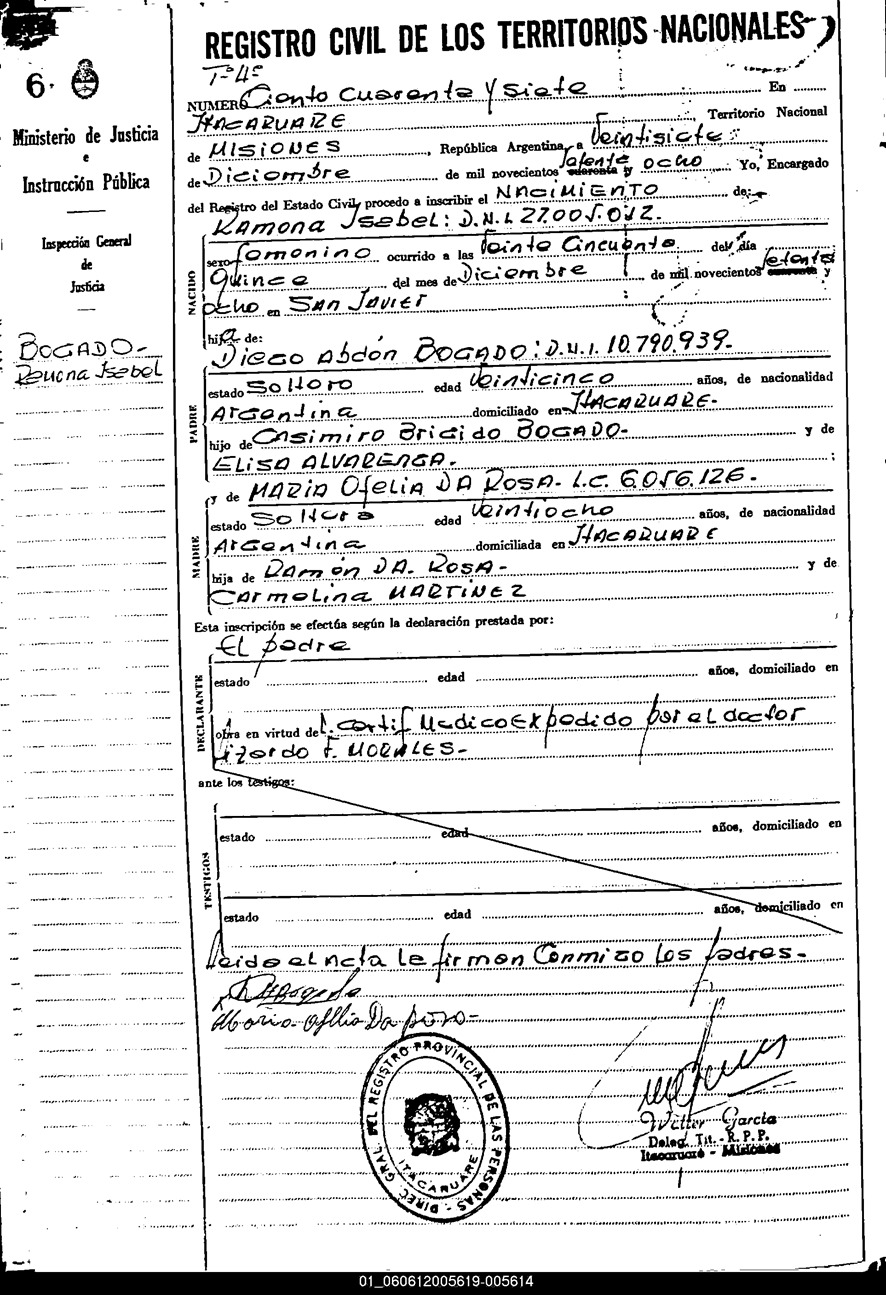 REGISTRO CIVIL DE LOS TERRITORIOS NACIONALES
Tº 4º
6.
Ministerio de Justicia
e
Instrucción Pública
Inspección General
de
Justicia
BOGADO-
Ramona Isabel
NUMERO Ciento cuarenta y siete En
ITACARUARE Territorio Nacional
de MISIONES, República Argentina, a Veintisiete
de Diciembre de mil novecientos setenta y ocho Yo, Encargado
del Registro del Estado Civil, procedo a inscribir el NACIMIENTO de:
RAMONA ISABEL: D.N.I. 27.005.012.
NACIDO
sexo femenino ocurrido a las Veinte Cincuenta del día
Quince del mes de Diciembre de mil novecientos setenta y
ocho en SAN JAVIER
hija de:
DIEGO Abdón BOGADO: D.N.I. 10.790.939.
PADRE
estado Soltero edad Veinticinco años, de nacionalidad
Argentina domiciliado en ITACARUARE-
hijo de Casimiro Brigido BOGADO- y de
ELISA ALVARENGA. ;
y de MARIA Ofelia DA ROSA- L.C. 6.056.126-
MADRE
estado Soltera edad Veintiocho años, de nacionalidad
Argentina domiciliada en ITACARUARE
hija de RAMón DA. ROSA- y de
Carmelina MARTINEZ
Esta inscripción se efectúa según la declaración prestada por:
DECLARANTE
EL padre
estado edad años, domiciliado en
obra en virtud de l. certif Medico Expedido por el doctor
Lizardo F. MORALES-
ante los testigos:
TESTIGOS
estado edad años, domiciliado en
estado edad años, domiciliado en
Leida el Acta la firman Conmigo los padres-
Bogado
Maria Ofelia Da Rosa-
DIREC. GRAL. DEL REGISTRO PROVINCIAL DE LAS PERSONAS
ITACARUARE
Walter Garcia
Deleg. Tit. - R. P. P.
Itacaruaré - Misiones
01_060612005619-005614